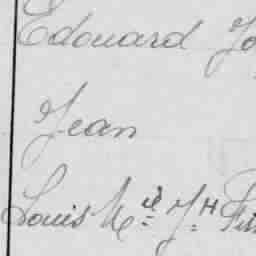 Edouard Jo
Jean
Louis M.ie J.H